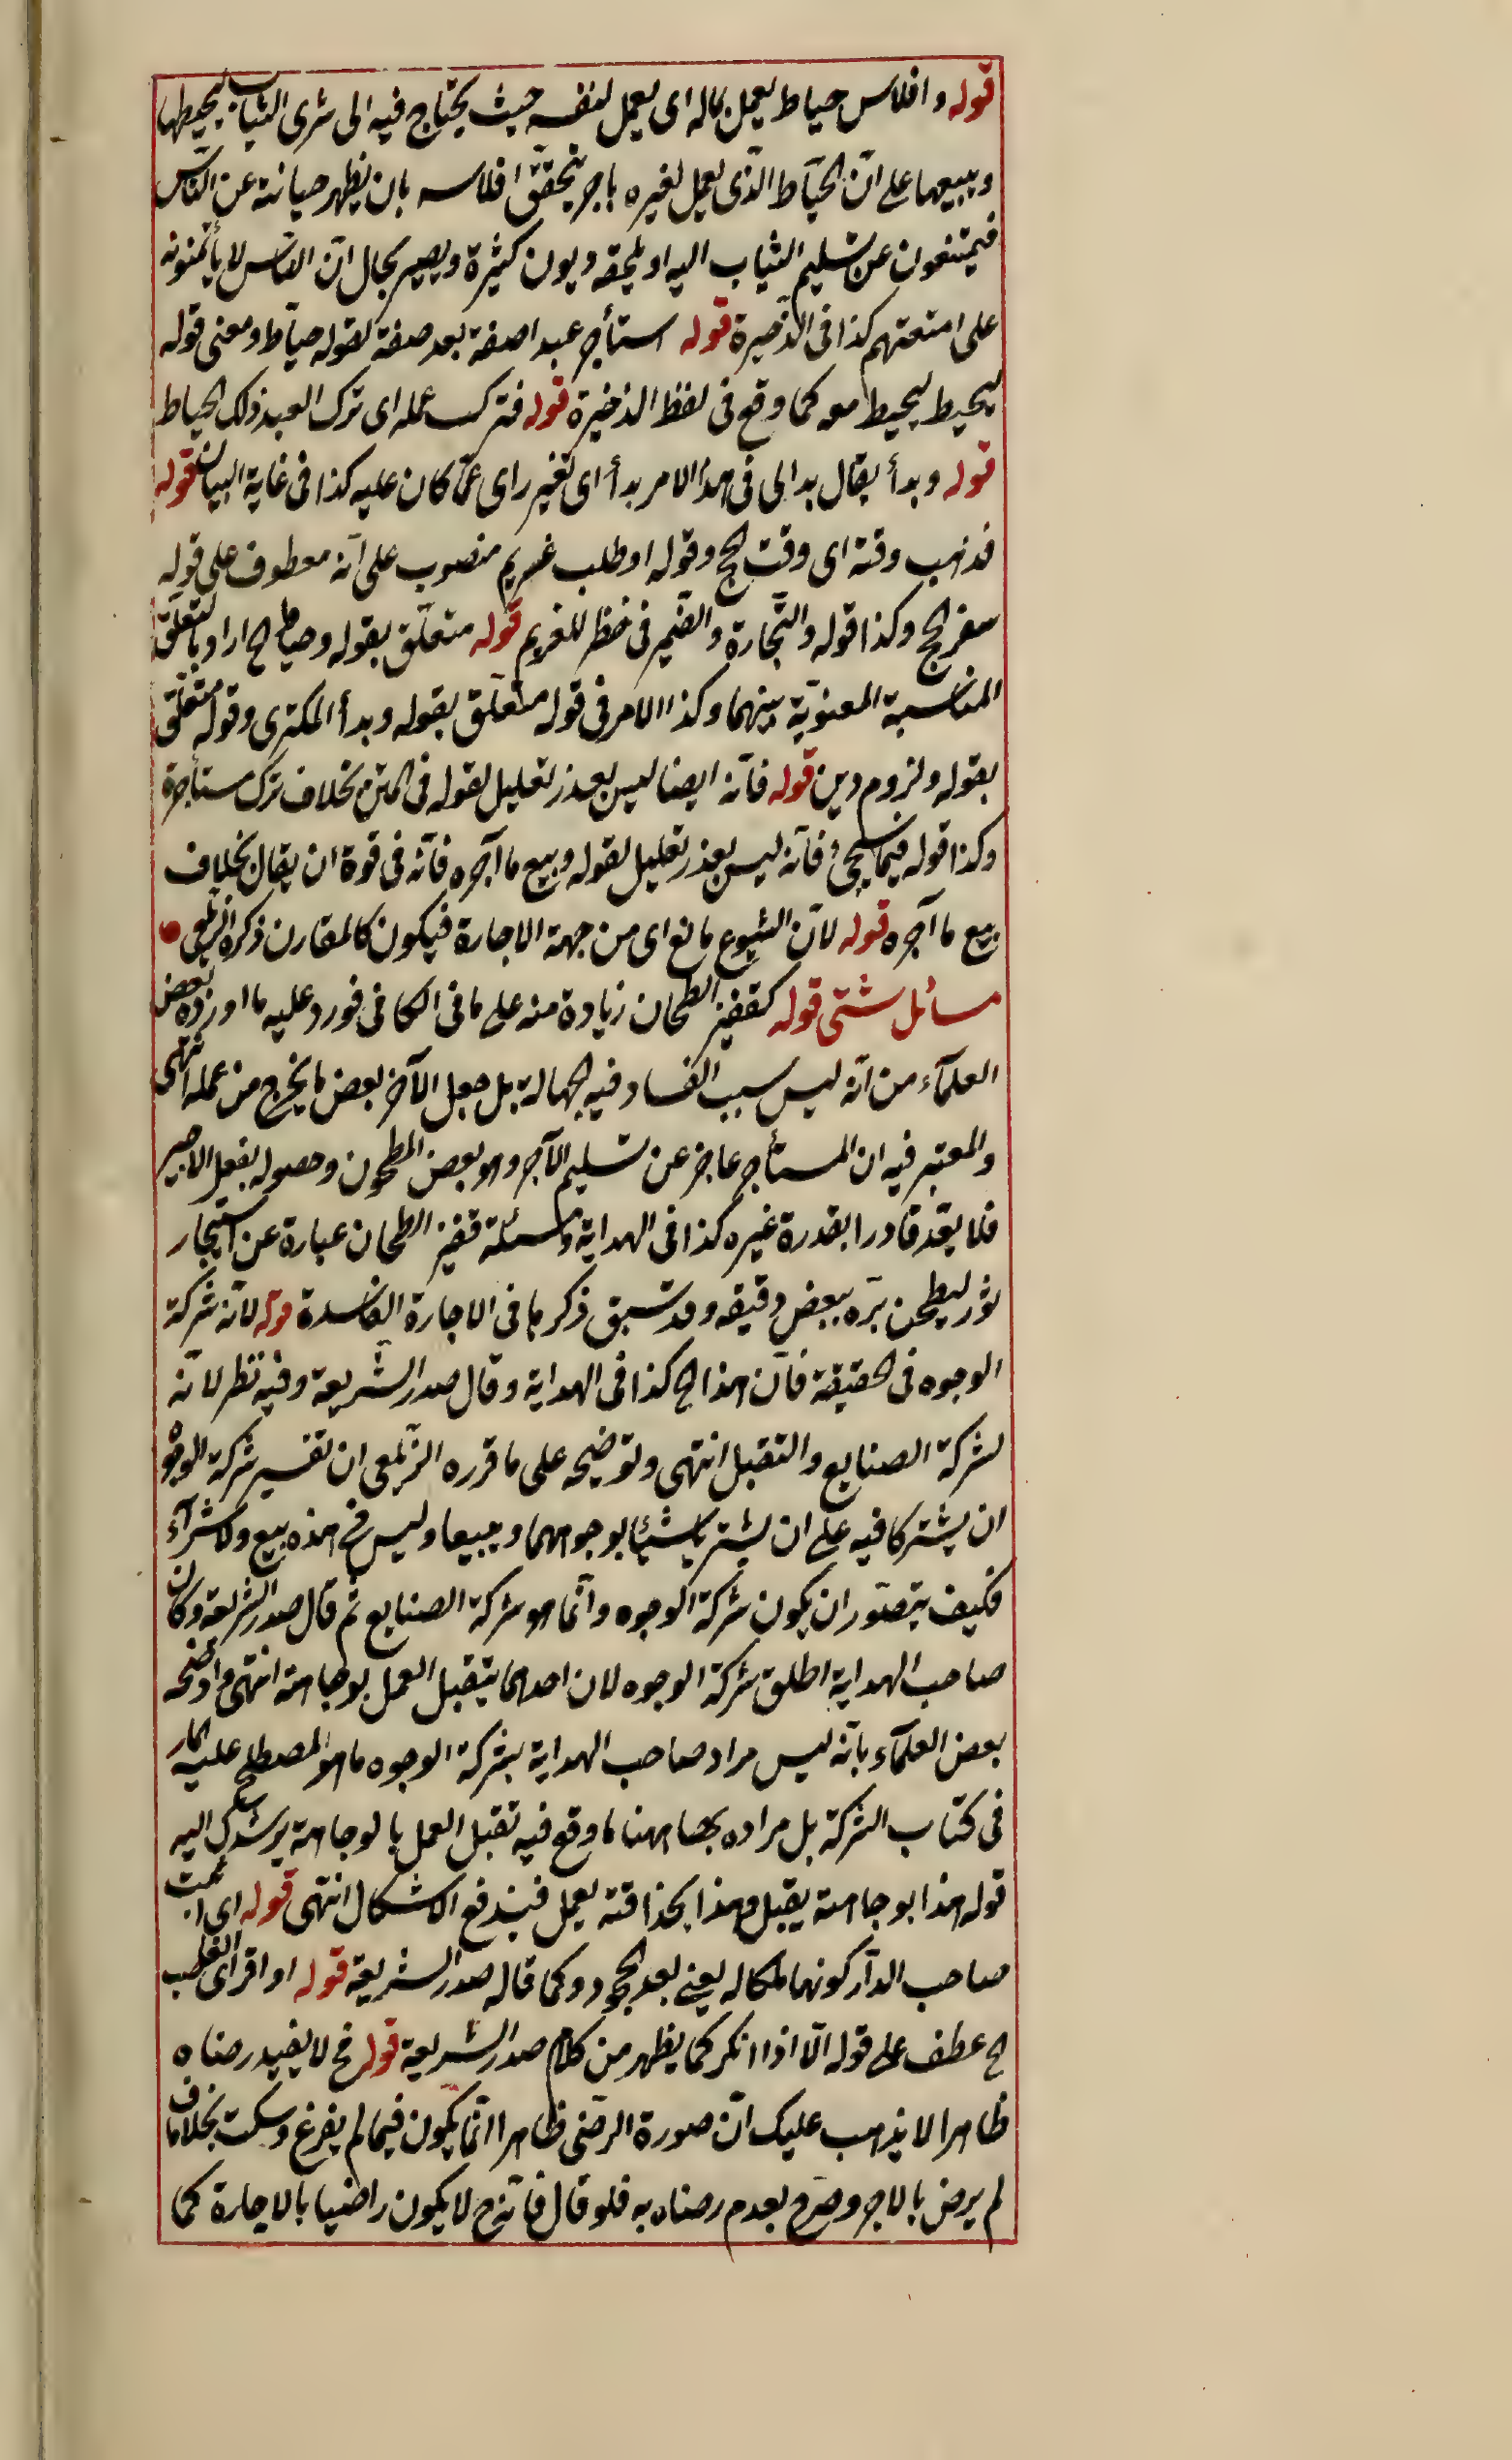 قوله وافلاس خياط يعمل بماله اى يعمل لنفسه حيث يحتاج فيه الى شرى الثياب ليخيطها
ويبيعها على انّ الخيّاط الّذى يعمل لغيره باجر يتحقّق افلاسه بان يظهر خيانته عن النّاس
فيمتنعون عن تسليم الثياب اليه او يلحقه ديون كثيرة ويصير بحال انّ النّاس لا يأتمنونه
على امتعتهم كذا فى الذّخيرة قوله استأجر عبدا صفة بعد صفة لقوله خيّاط ومعنى قوله
ليخيط ليخيط معه كما وقع فى لفظ الذخيرة قوله فترك عمله اى ترك العبد ذلك الخياط
قوله وبدأ يقال بدا لى فى هذا الامر بدأ اى تغير راى عمّا كان عليه كذا فى غاية البيان قوله
فذهب وقته اى وقت الحج وقوله او طلب غريم منصوب على انّه معطوف على قوله
سفر الحج وكذا قوله والتّجارة والضّمير فى خطر للغريم قوله متعلّق بقوله وخياط الخ اراد بالتعلّق
المناسبة المعنويّة بينهما وكذا الامر فى قوله متعلّق بقوله وبدأ المكترى وقوله متعلّق
بقوله ولزوم دين قوله فانّه ايضا ليس بعذر تعليل لقوله فى المتن بخلاف ترك مستأجرة
وكذا قوله فيما سيجئ فانّه ليس بعذر تعليل لقوله وبيع ما آجره فانّه فى قوة ان يقال بخلاف
بيع ما آجره قوله لانّ الشيوع مانع اى من جهة الاجارة فيكون كالمقارن ذكره الزيلعى
مسائل شتى قوله كقفيز الطحان زيادة منه على ما فى الكافى فورد عليه ما اورده بعض
العلمآء من انّه ليس سبب الفساد فيه الجهالة بل جعل الآجر بعض ما يخرج من عمله انتهى
والمعتبر فيه ان المستأجر عاجز عن تسليم الآجر وهو بعض المطحون وحصوله بفعل الاجير
فلا يعد قادرا بقدرة غيره كذا فى الهداية ومسئلة قفيز الطحان عبارة عن استيجار
ثور ليطحن برّه ببعض دقيقه وقد سبق ذكرها فى الاجارة الفاسدة قوله لانّه شركة
الوجوه فى الحقيقة فانّ هذا الخ كذا فى الهداية وقال صدر الشّريعة وفيه نظر لانّه
لشركة الصنايع والتقبل انتهى وتوضيحه على ما قرره الزّيلعى ان تفسير شركة الوجوه
ان يشتركا فيه على ان يشتريا شيئا بوجوههما ويبيعا وليس فى هذه بيع ولا شرآء
فكيف يتصوّر ان يكون شركة الوجوه وانّما هو شركة الصنايع ثم قال صدر الشريعة وكان
صاحب الهداية اطلق شركة الوجوه لان احدهما يتقبل العمل بوجاهته انتهى واوضحه
بعض العلمآء بانّه ليس مراد صاحب الهداية بشركة الوجوه ما هو المصطلح عليه المار
فى كتاب الشركة بل مراده بها ههنا ما وقع فيه تقبل العمل بالوجاهة يرشدك اليه
قوله هذا بوجاهته يقبل وهذا بحذاقته يعمل فيندفع الاشكال انتهى قوله اى اثبت
صاحب الدّار كونها ملكا له يعنى بعد الجحود وكما قاله صدر الشريعة قوله او اقر اى الغاصب
الخ عطف على قوله الّا اذا انكر كما يظهر من كلام صدر الشريعة قوله فح لا يفيد رضاه
ظاهرا لا يذهب عليك انّ صورة الرّضى ظاهرا انّما يكون فيما لم يفرغ وسكت بخلاف ما
لم يرض بالاجر وصرّح بعدم رضاه به فلو قال فانّه ح لا يكون راضيا بالاجارة كما